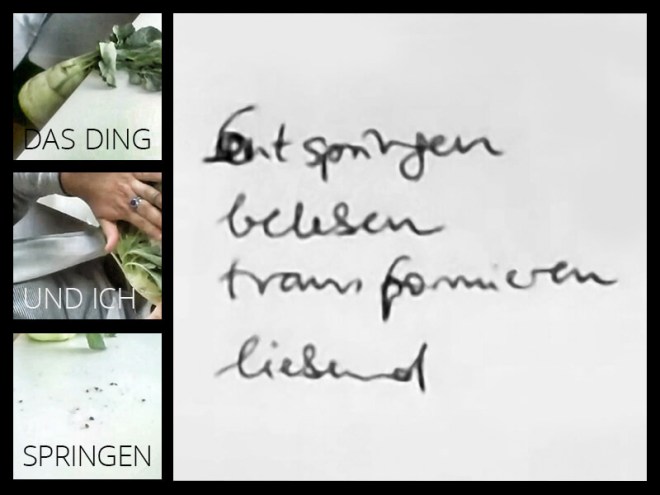 DAS DING
UND ICH
SPRINGEN
Entspringen
belesen
transformieren
liesend